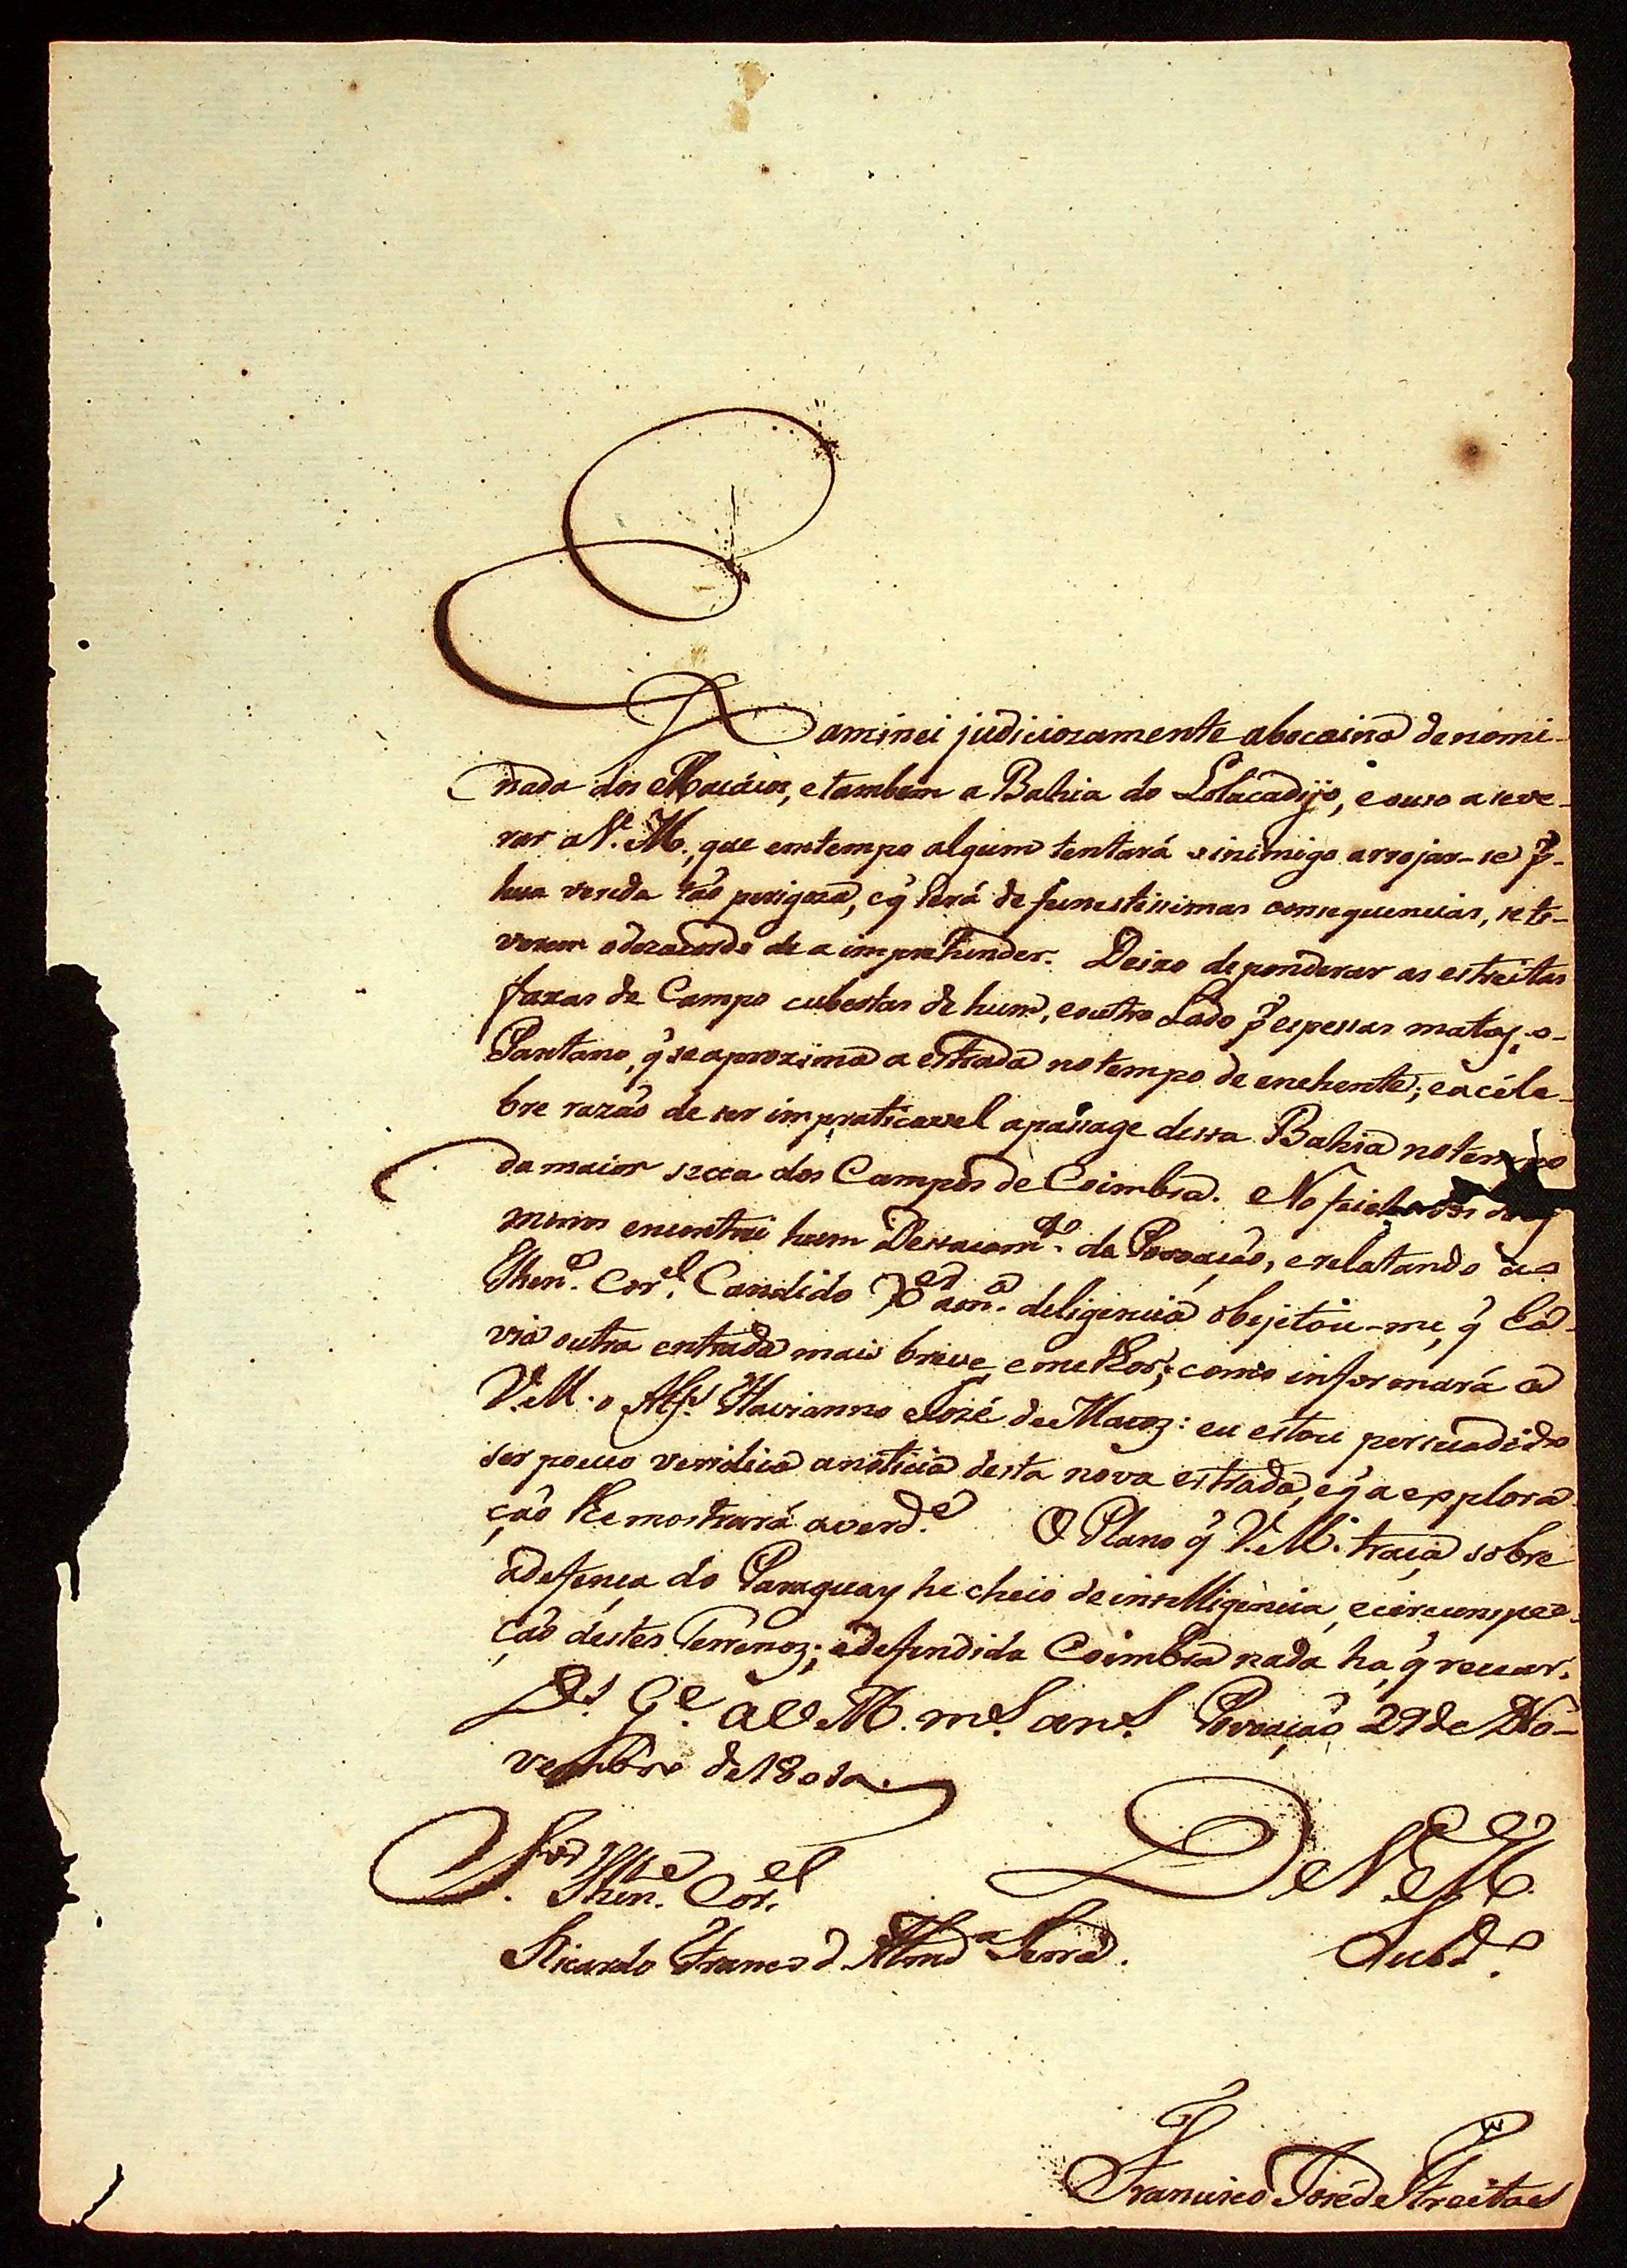 Examinei judiciozamente abocaina denomi-
nada dos Macácos, e tambem a Bahia do Lolacadijo, e ouso aseve-
rar a V. M., que emtempo algum tentará o inimigo arrojar-se p.
hua vereda tão perigoza, e q̃ será de funestissimas consequencias, se ti-
verem odezacordo de a imprehender. Deixo deponderar as estreitas
faxas de Campo cubertas de hum, e outro Lado p. espessas matas, o
Pantano, q̃ se aproxima a estrada notempo de enchente; e a céle-
bre razão de ser impraticavel apassage dessa Bahia notempo
da maior secca dos Campos de Coimbra. No feicho dos
morros encontrei hum Destacam.to da Povoação, erelatando ao
Then.e Cor.el Candido X.er am.a deligencia objetou-me, q̃ ha-
via outra entrada mais breve, emelhor; como informará a
V. M. o Alf.s Flavianno José de Mattoz: eu estou persuadido
ser pouco veridica anoticia desta nova estrada, e q̃ a explora-
ção lhe mostrará averd.e O Plano q̃ V. M. traça sobre
adefença do Paraguay he cheio deintelligencia, ecircunspec-
ção destes Terrenoz; edefendida Coimbra nada ha, q̃ recear.
D.s G.e a V. M. m.s an.s Povoação 29 de No-
vembro de 1801
S.or Then.e Cor.el
De V. M.
Ricardo Franco d Almd.a Serra.
Subd.o
Francisco José de Freitas